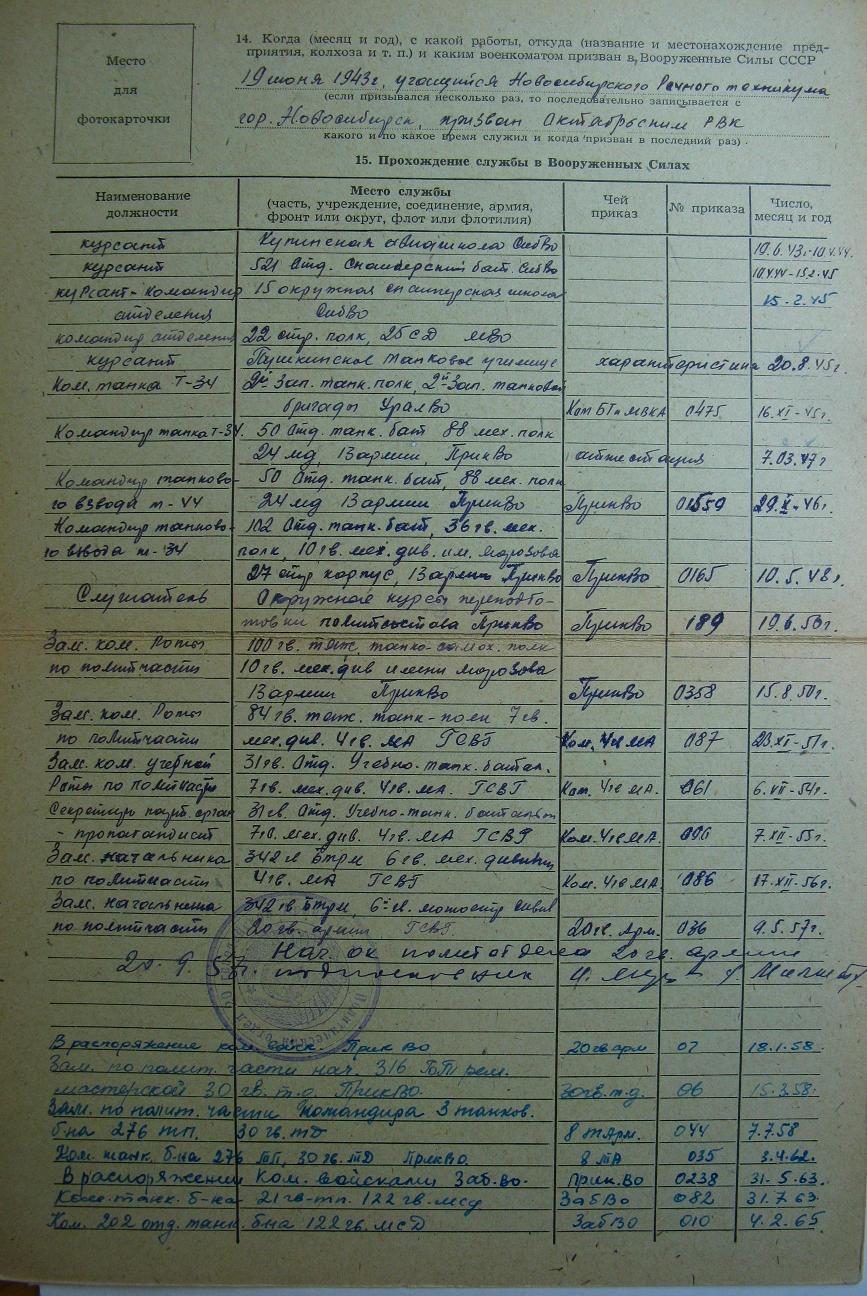 Место
для
фотокарточки
14. Когда (месяц и год), с какой работы, откуда (название и местонахождение пред-
приятия, колхоза и т. п.) и каким военкоматом призван в Вооруженные Силы СССР
19 июня 1943г, учащийся Новосибирского Речного техникума
(если призывался несколько раз, то последовательно записывается с
гор. Новосибирск, призван Октябрьским РВК
какого и по какое время служил и когда призван в последний раз)
15. Прохождение службы в Вооруженных Силах
Наименование должности Место службы (часть, учреждение, соединение, армия, фронт или округ, флот или флотилия) Чей приказ № приказа Число, месяц и год
курсант Купинская авиашкола СибВо 19.6.43г-10.4.44.
курсант 521 Отд. Снайперский бат. СибВо 10.4.44-15.2.45
курсант-командир 15 окружная снайперская школа
отделения СибВо 15.2.45
командир отделения 22 стр. полк, 25 сд МВО
курсант Пушкинское танковое училище характеристика 20.8.45г.
Ком. танка Т-34 2й Зап. танк. полк, 2й Зап. танковой
бригады УралВо Ком БТиМВКА 0475 16.XI-45г.
Командир танка Т-34. 50 Отд. танк. бат 88 мех. полк
24 мд, 13 армии, ПрикВо аттестация 7.03.47г
Командир танково- 50 Отд. танк. бат, 88 мех. полк
го взвода т-44 24 мд 13 армии ПрикВо ПрикВо 01559 29.X-46г.
Командир танково- 102 Отд. танк. бат, 36 гв. мех.
го взвода т-34 полк, 10 гв. мех. див. им. Морозова
27 стр корпус, 13 армии ПрикВо ПрикВо 0165 10.5.48г.
Слушатель Окружные курсы переподго-
товки политсостава ПрикВо ПрикВо 189 19.6.50г.
Зам. ком. Роты 100 гв. тяж. танко-самох. полк
по политчасти 10 гв. мех. див имени Морозова
13 армии ПрикВо ПрикВо 0358 15.8.50г.
Зам. ком. Роты 84 гв. тяж. танк-полк 7 гв.
по политчасти мех. див. 4 гв. МА ГСВГ Ком. 4 гв МА 087 23.XI-51г.
Зам. ком. учебной 31 гв. Отд. Учебно-танк. батал.
Роты по политчасти 7 гв. мех. див. 4 гв. МА. ГСВГ Ком. 4 гв МА. 061 6.VII-54г.
Секретарь парт. орган 31 гв. Отд. Учебно-танк. батальон
- пропагандист 7 гв. мех. див. 4 гв. МА ГСВГ Ком. 4 гв МА. 7.XII-55г.
Зам. начальника 342 гв БТРМ 6 гв. мех. дивизии
по политчасти 4 гв. МА ГСВГ Ком. 4 гв МА 086 17.XII-56г.
Зам. начальника 342 гв БТРМ, 6й гв. мотостр дивиз
по политчасти 20 гв. армии ГСВГ. 20 гв. Арм. 036 9.5.57г.
Нач. ОК политотдела 20 гв. армии
20.9.57г. подполковник
В распоряжение ком. войск ПрикВо 20 гв арм 07 18.1.58.
Зам. по полит. части нач. 316 рем.
мастерской 30 гв. т.д. ПрикВО. 30 гв. т.д. 06 15.3.58.
Зам. по полит. части командира 3 танков.
б-на 276 тп. 30 гв. тд 8 т Арм. 044 7.7.58
Ком. танк. б-на 276 ТП, 30 гв. ТД ПрикВО. 8 ТА 035 3.4.62.
В распоряжении Ком. войсками Заб. во. Прик. Во 0238 31-5.63.
Ком. танк. б-на 21 гв-тп. 122 гв. мсд ЗабВо 082 31.7.63
Ком. 202 отд. танк. б-на 122 гв. мсд ЗабВО 010 4.2.65